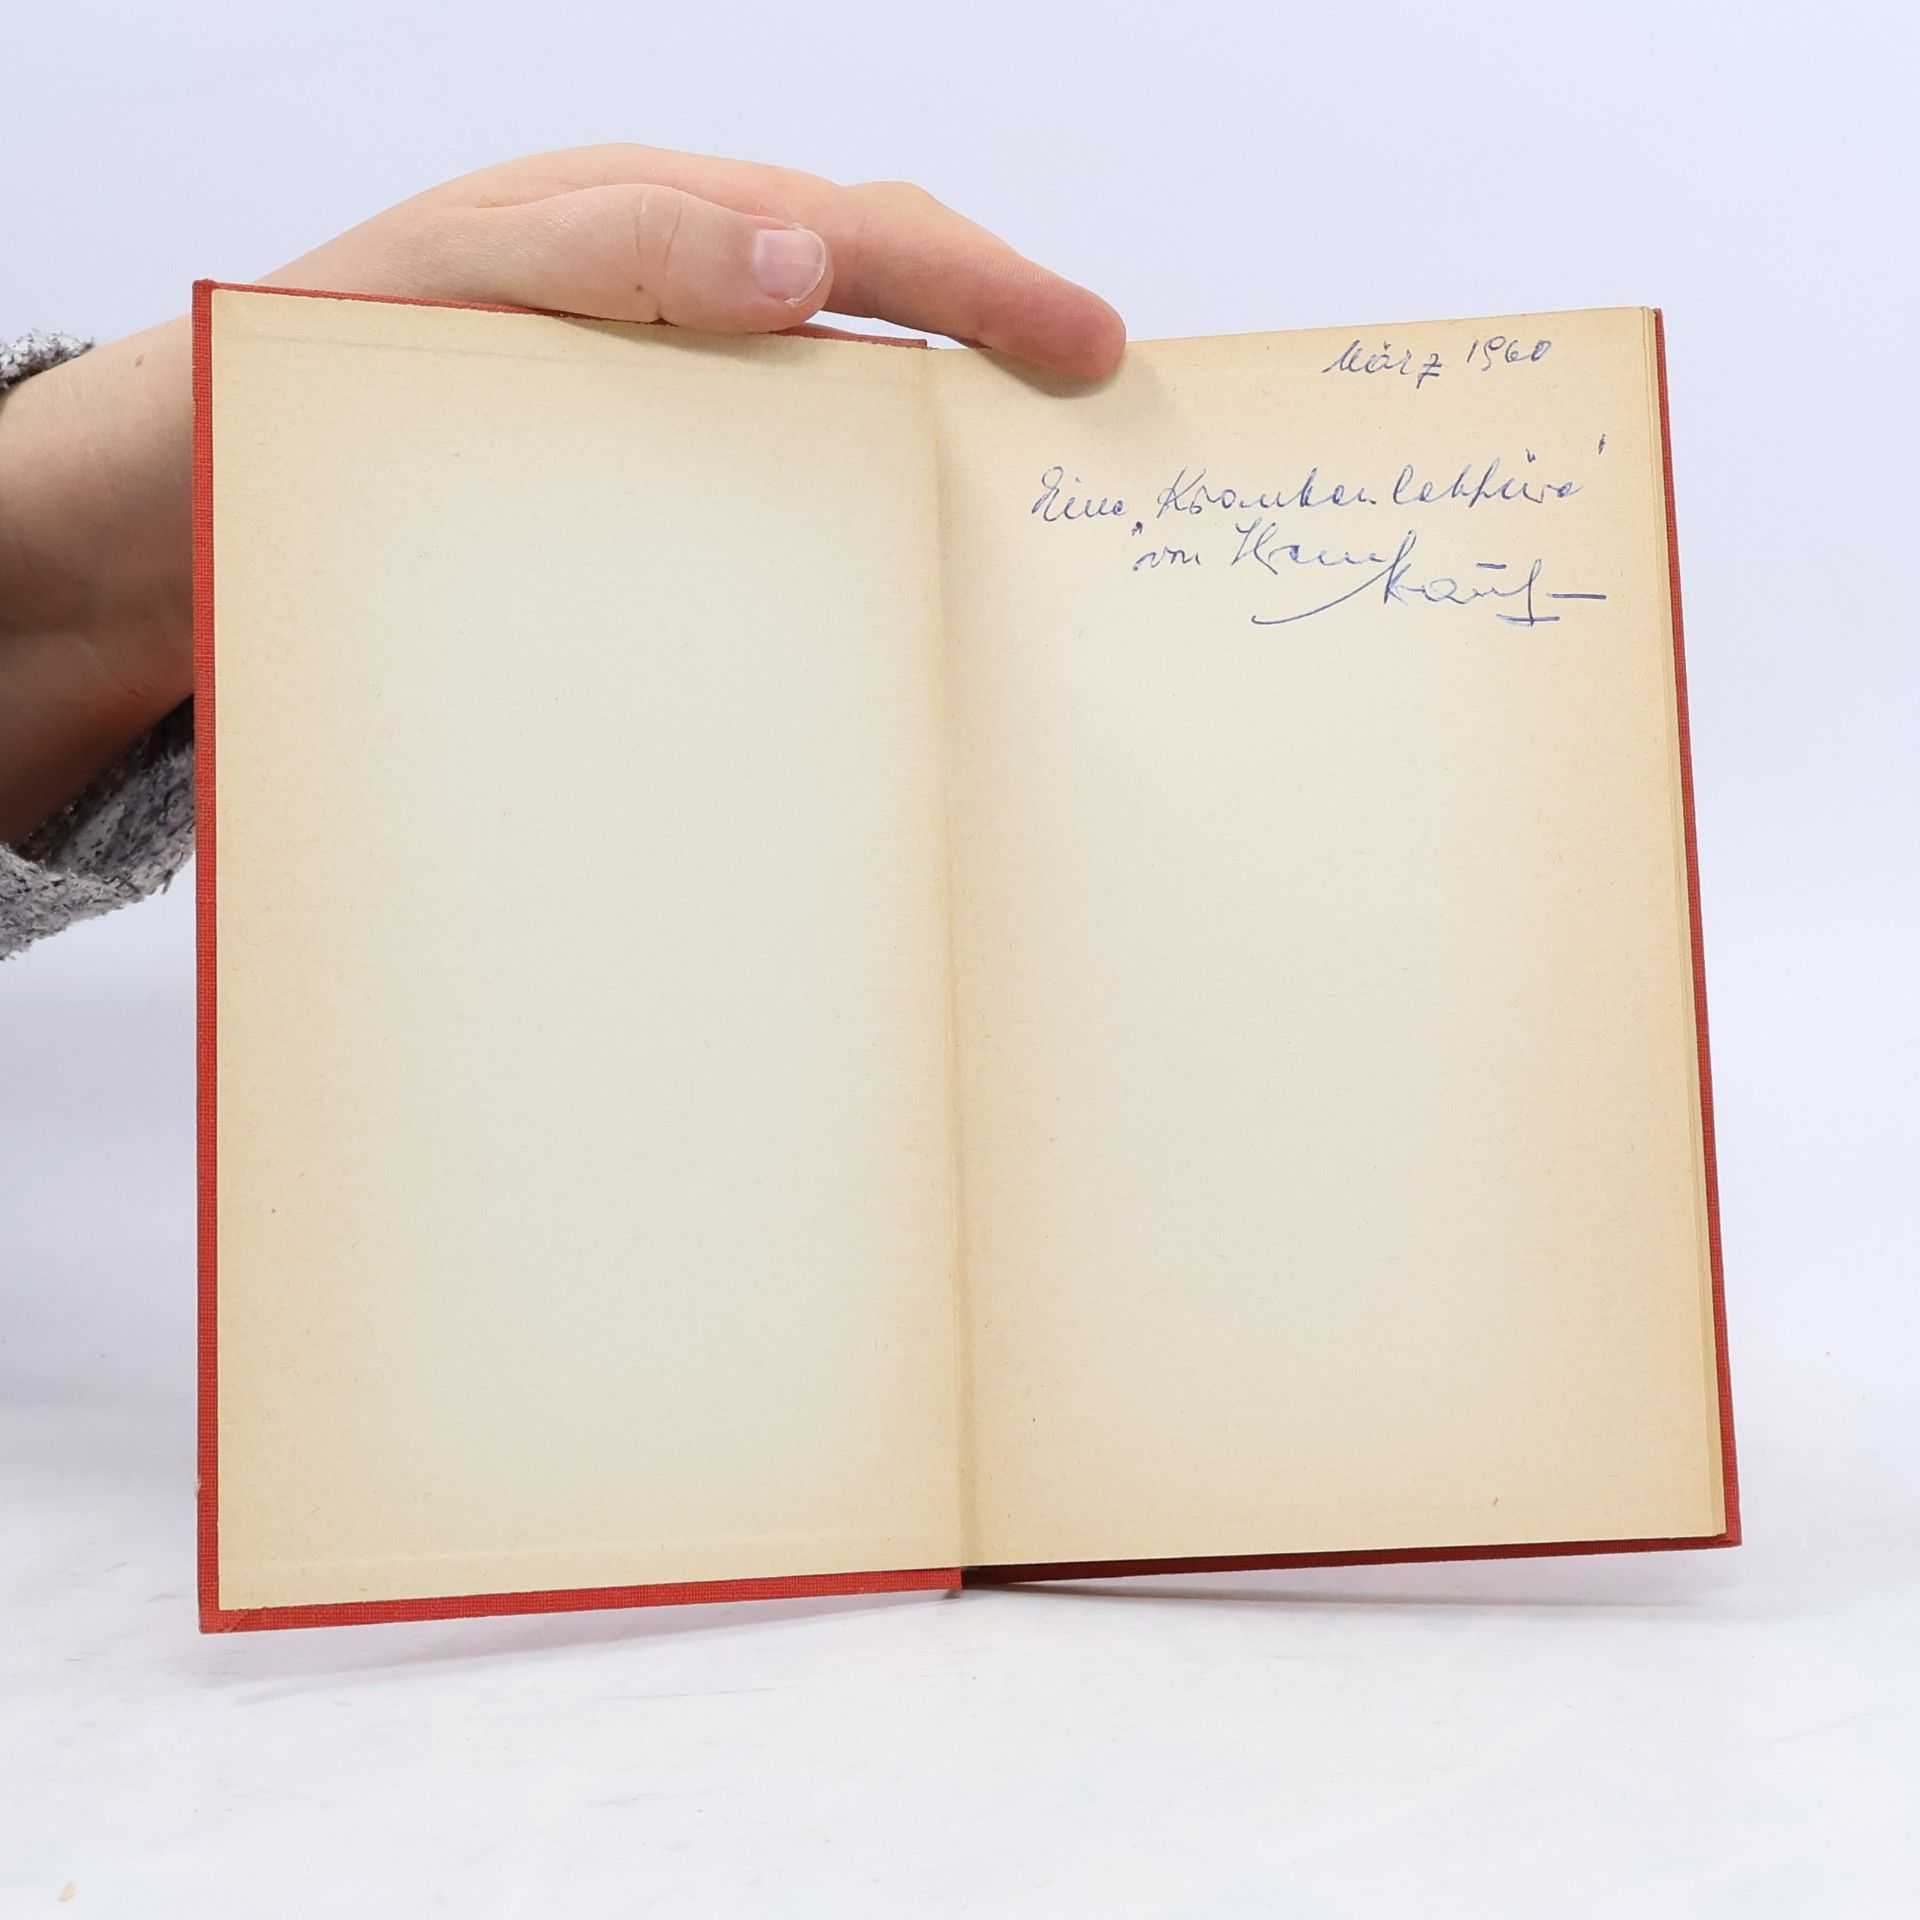 März 1960
Eine „Krankenlektüre"
von